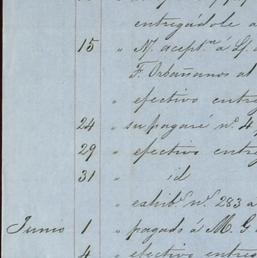 entregádole a
15 " M. acept.ⁿ á Lf.
F. Orbañanos al
" efectivo entre
24 " su pagaré nº. 4
29 " efectivo entre
31 " id
" exhibº. nº. 283 a
Junio 1 " pagado á M. G
4 " efectivo entreg